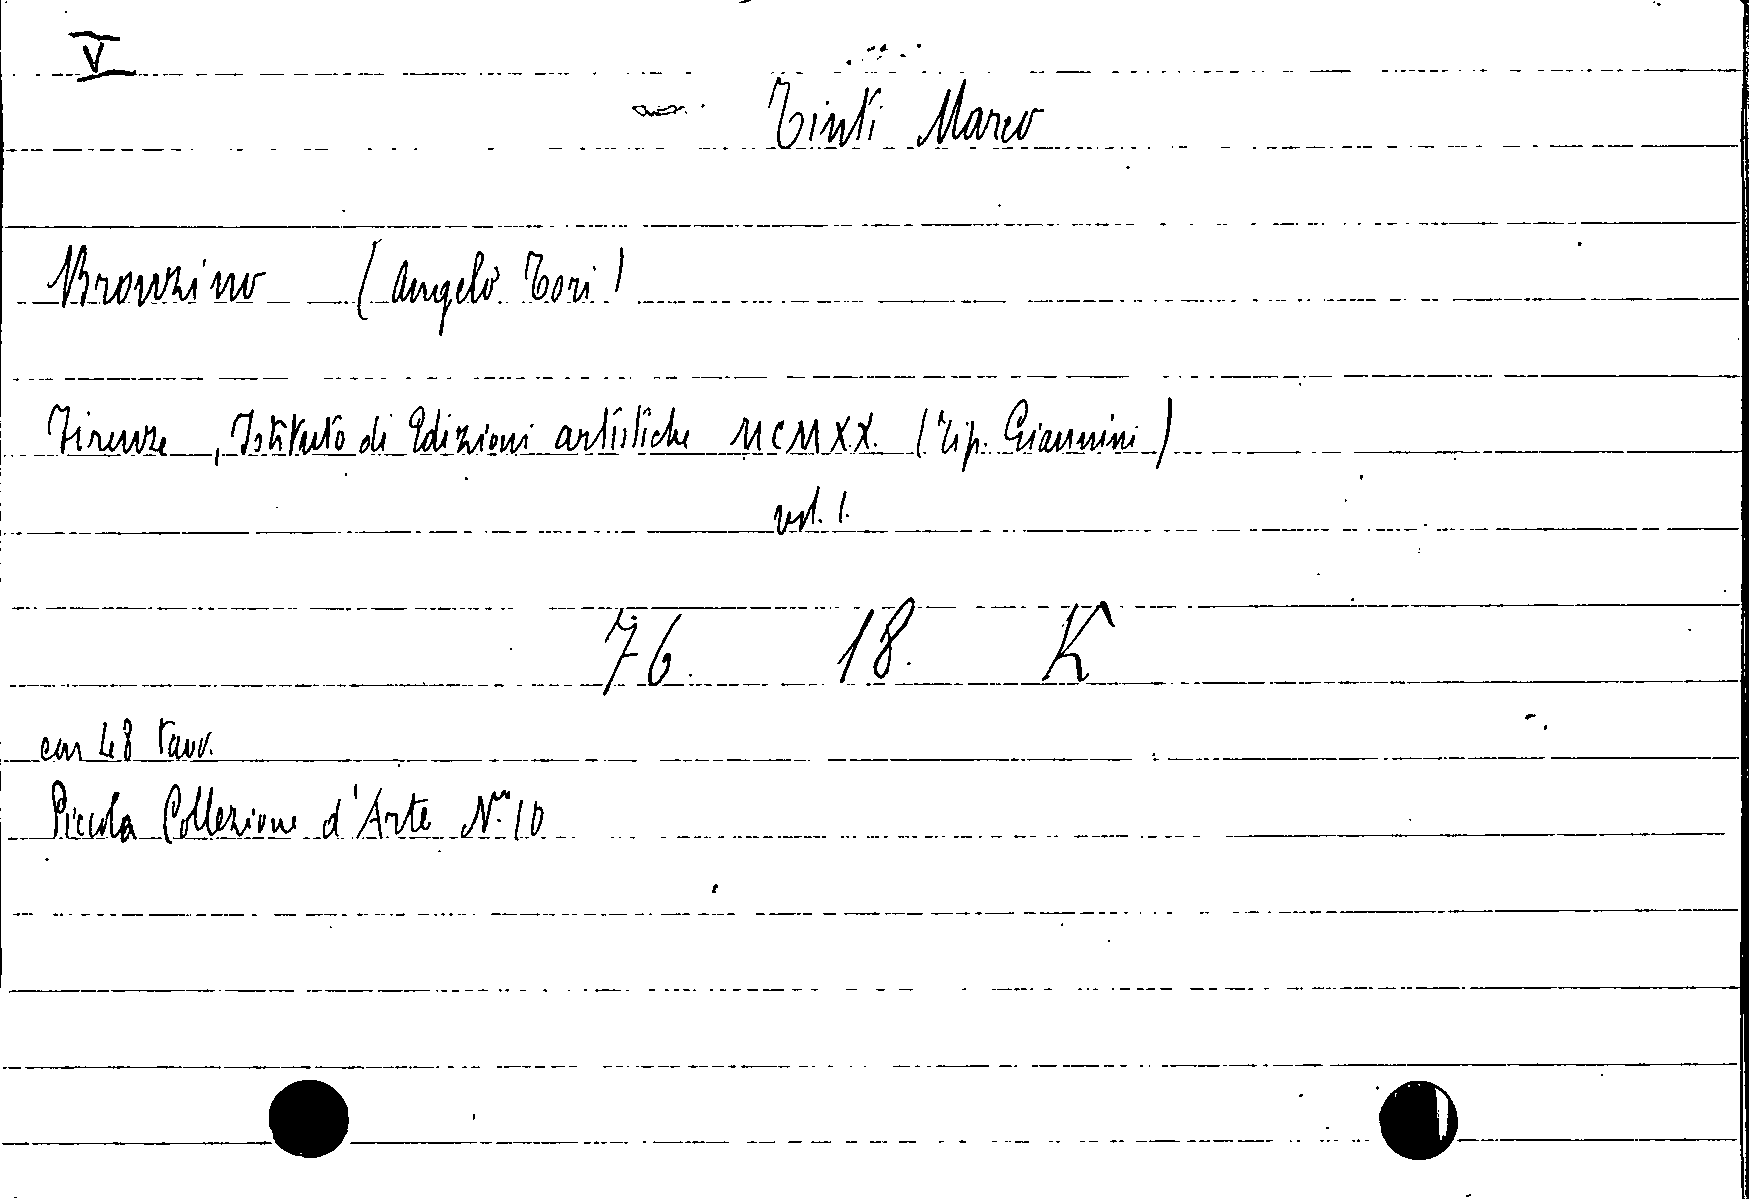 V
Tinti Marco
Bronzino (Angelo Tori)
Firenze, Istituto di Edizioni artistiche MCMXX. (Tip. Giannini)
vol. 1.
76. 18. K
con 48 tavv.
Piccola Collezione d'Arte N.º 10